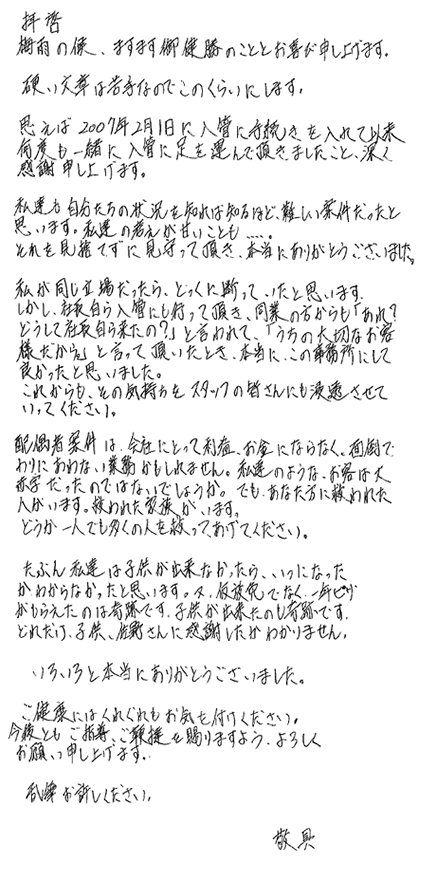 拝啓
梅雨の候、ますます御健勝のこととお喜び申し上げます。
硬い文章は苦手なのでこのくらいにします。
思えば2007年2月1日に入管に手続きを入れて以来
何度も一緒に入管に足を運んで頂きましたこと、深く
感謝申し上げます。
私達も自分たちの状況を知れば知るほど、難しい案件だったと
思います。私達の考えが甘いことも……。
それを見捨てずに見守って頂き、本当にありがとうございました。
私が同じ立場だったら、とっくに断っていたと思います。
しかし、社長自ら入管にも行って頂き、同業の方からも「あれ?
どうして社長自ら来たの?」と言われて、「うちの大切なお客
様だから」と言って頂いたとき、本当に、この事務所にして
良かったと思いました。
これからも、その気持ちをスタッフの皆さんにも浸透させて
いってください。
配偶者案件は、会社にとって利益、お金にならなく。面倒で
わりにあわない業務かもしれません。私達のような、お客は大
赤字だったのではないでしょうか。でも、あなた方に救われた
人がいます。救われた家族がいます。
どうか一人でも多くの人を救ってあげてください。
たぶん私達は子供が出来なかったら、いつになった
かわからなかったと思います。又、仮放免でなく、一年ビザ
がもらえたのは奇跡です。子供が出来たのも奇跡です。
どれだけ、子供、佐野さんに感謝したかわかりません。
いろいろと本当にありがとうございました。
ご健康にはくれぐれもお気を付けください。
今後ともご指導、ご鞭撻を賜りますよう、よろしく
お願い申し上げます。
乱筆お許しください。
敬具